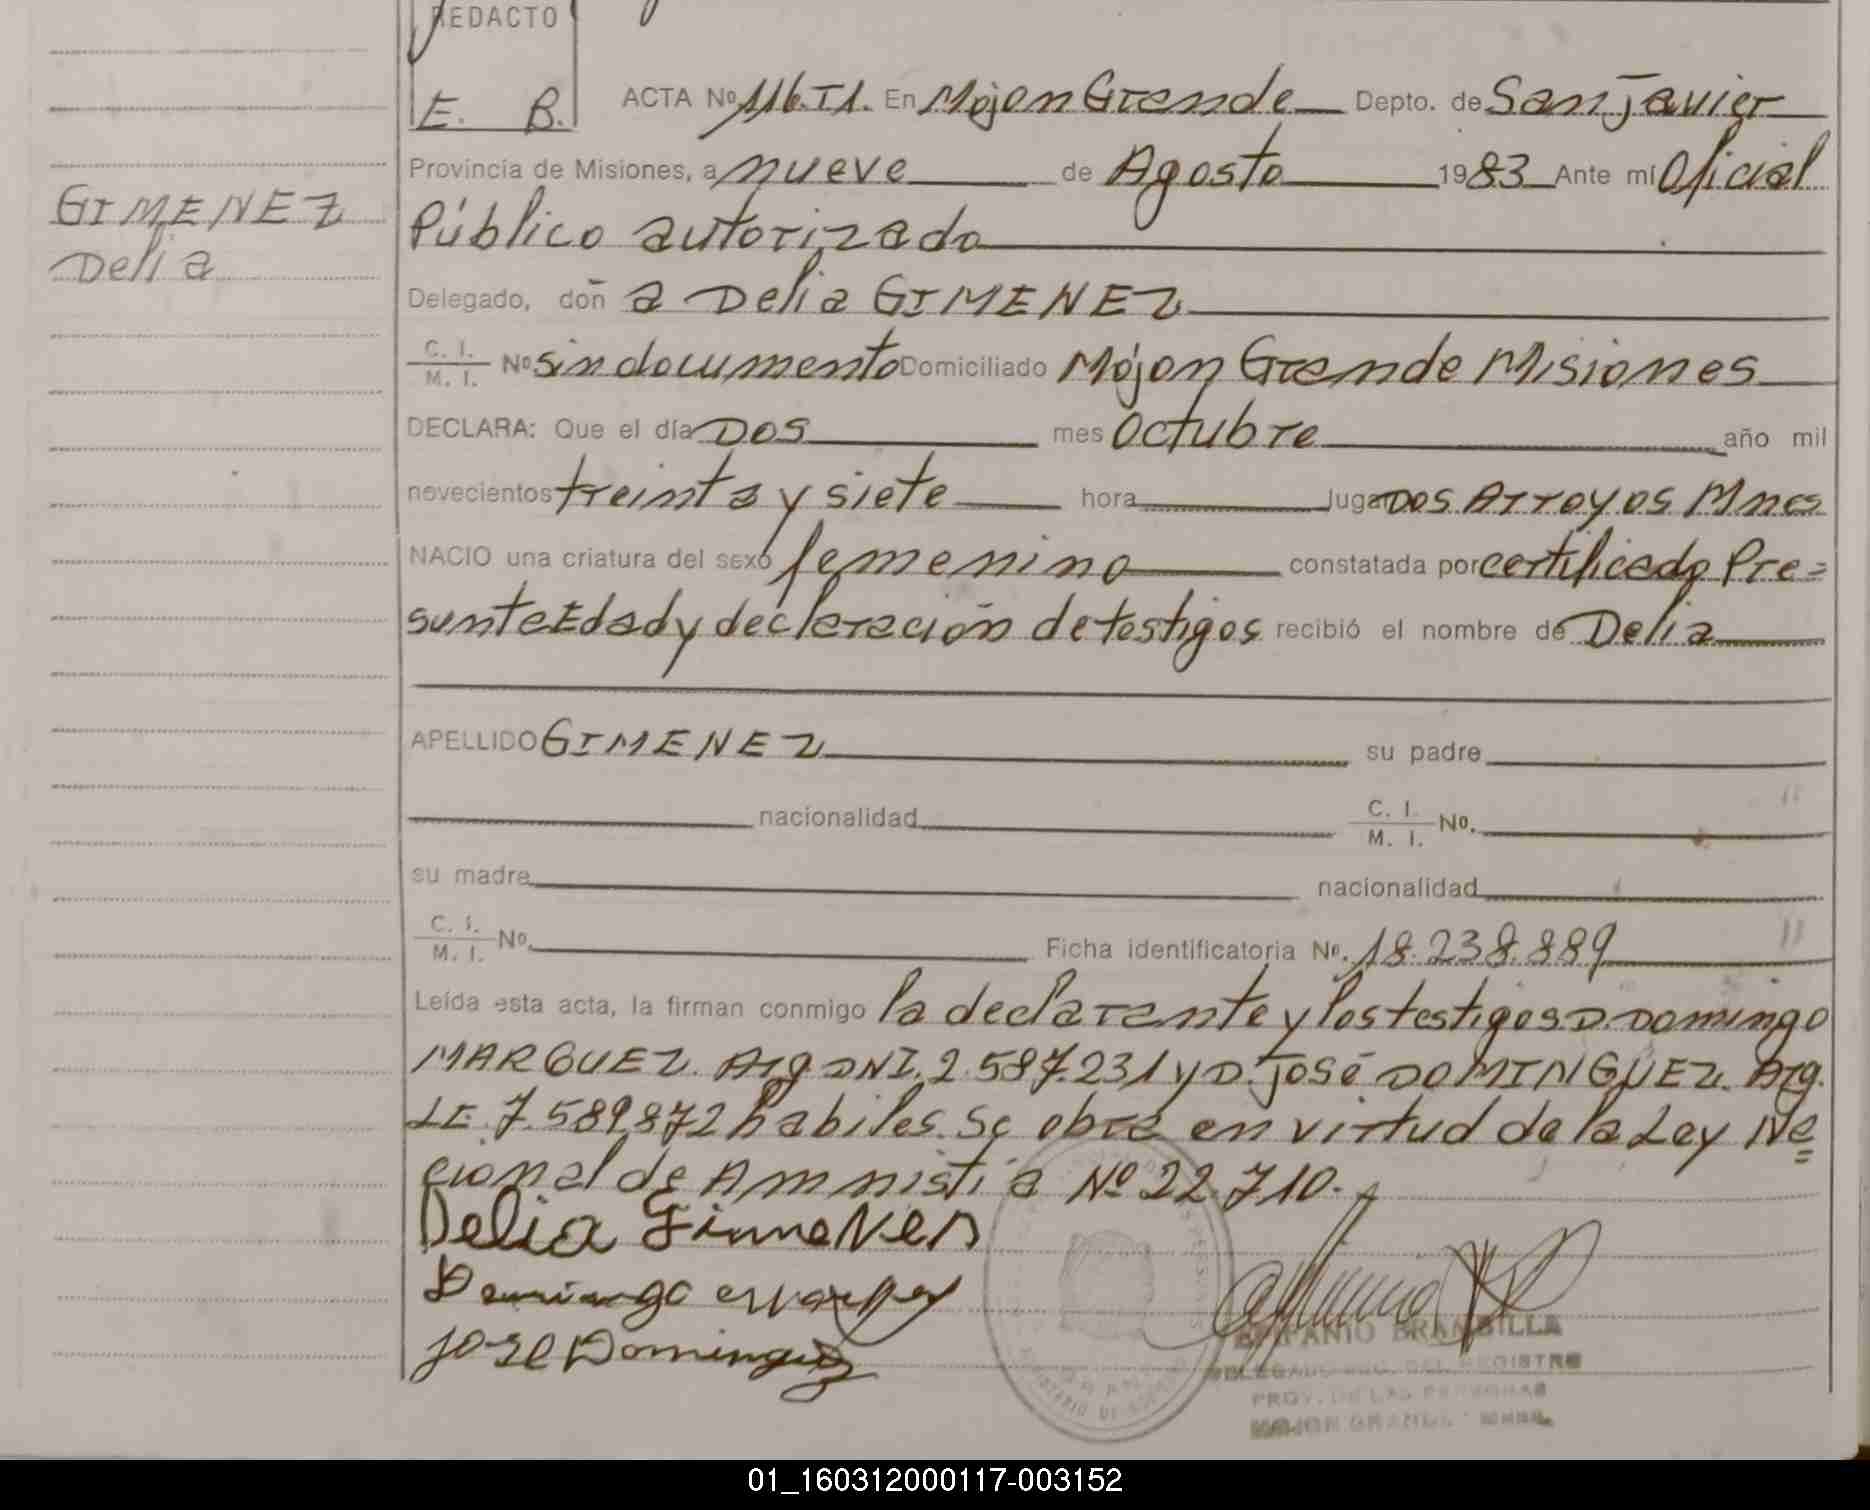 REDACTO
E. B.
GIMENEZ
Delia
ACTA Nº 116.T1. En Mojon Grande Depto. de San Javier
Provincia de Misiones, a nueve de Agosto 1983 Ante mí Oficial
Público autorizado
Delegado, don a Delia GIMENEZ
C. I. / M. I. Nº sin documento Domiciliado Mójon Grande Misiones
DECLARA: Que el día Dos mes Octubre año mil
novecientos treinta y siete hora lugar Dos Arroyos Mnes
NACIO una criatura del sexo femenino constatada por certificado Pre=
sunta Edad y declaración de testigos recibió el nombre de Delia
APELLIDO GIMENEZ su padre
nacionalidad C. I. / M. I. Nº.
su madre nacionalidad
C. I. / M. I. Nº. Ficha identificatoria Nº. 18.238.889
Leída esta acta, la firman conmigo la declarante y los testigos D. Domingo
MARQUEZ. Arg DNI. 2.587.231 y D. José DOMINGUEZ. Arg.
LE. 7.589.872 habiles. Se obra en virtud de la Ley Na=
cional de Amnistía Nº 22.710.
Delia Gimenes
Domingo Marquez
Jose Dominguez
EMPANIO BRAMBILLA
DELEGADO REG. DEL REGISTRO
PROV. DE LAS PERSONAS
MOJON GRANDE - MNES.
01_160312000117-003152